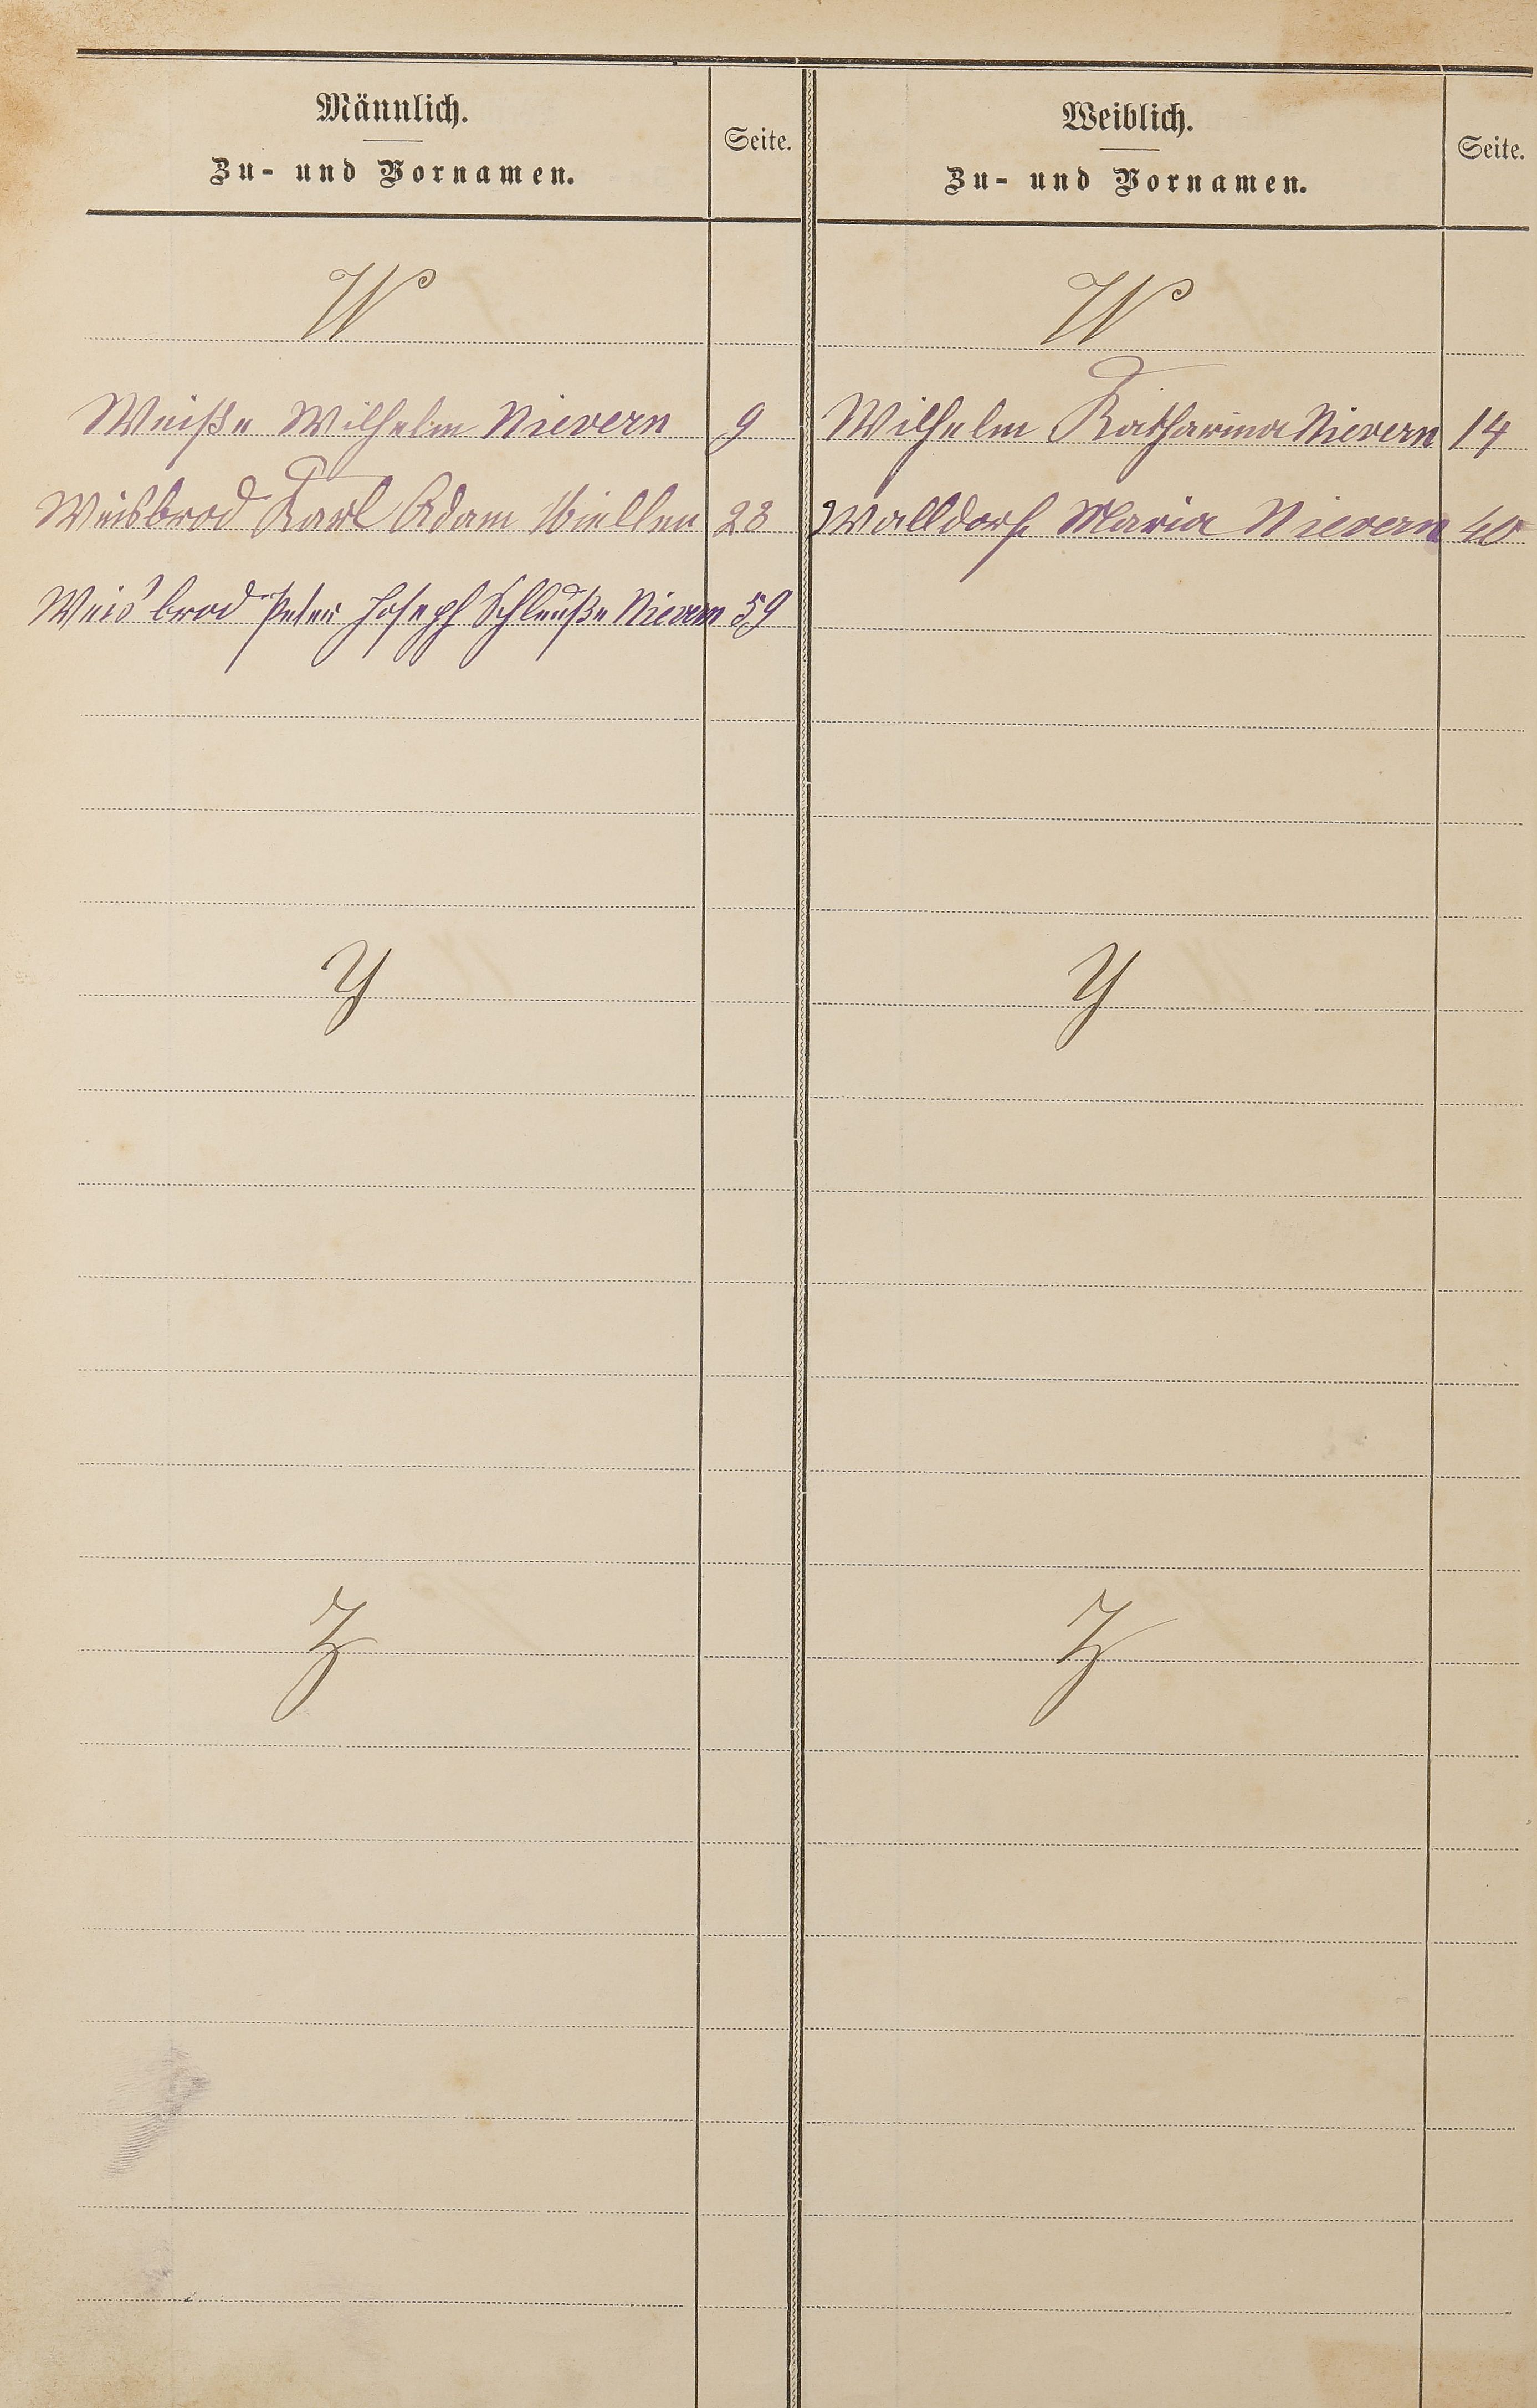 Männlich.
Zu- und Vornamen.
Seite.
Weiblich.
Zu- und Vornamen.
Seite.
W
W
Weiße Wilhelm Nievern 9
Wilhelm Katharina Nievern 14
Weisbrod Karl Adam Miellen 28
Walldorf Maria Nievern 40
Weisbrod Peter Joseph Schleuße Nievern 59
Y
Y
Z
Z